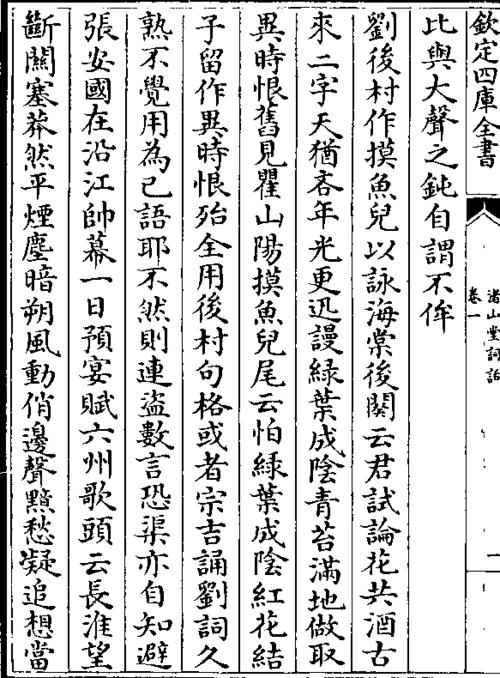 欽定四庫全書
渚山堂詞話
卷一
比與大聲之鈍自謂不侔
劉後村作摸魚兒以詠海棠後闋云君試論花共酒古
來二字天猶吝年光更迅謾綠葉成陰青苔滿地做取
異時恨舊見瞿山陽摸魚兒尾云怕綠葉成陰紅花結
子留作異時恨殆全用後村句格或者宗吉誦劉詞久
熟不覺用為己語耶不然則連盜數言恐渠亦自知避
張安國在沿江帥幕一日預宴賦六州歌頭云長淮望
斷關塞莽然平煙塵暗朔風動悄邊聲黯愁凝追想當